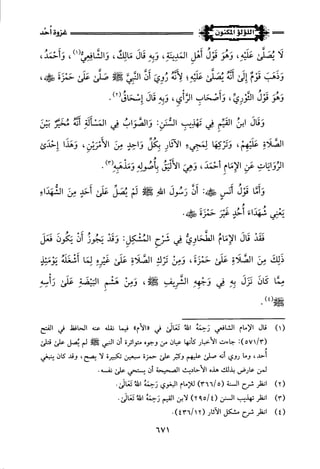 اللؤلؤ المكنون
غزوة أحد
لَا يُصَلَّى عَلَيْهِ، وَهُوَ قَوْلُ أَهْلِ المَدِينَةِ، وَبِهِ قَالَ مَالِكٌ، وَالشَّافِعِيُّ(١)، وَأَحْمَدُ،
وَذَهَبَ قَوْمٌ إِلَى أَنَّهُ يُصَلَّى عَلَيْهِ؛ لِأَنَّهُ رُوِيَ أَنَّ النَّبِيَّ ﷺ صَلَّى عَلَى حَمْزَةَ ﷺ،
وَهُوَ قَوْلُ الثَّوْرِيِّ، وَأَصْحَابِ الرَّأْيِ، وَبِهِ قَالَ إِسْحَاقُ(٢).
وَقَالَ ابنُ القَيِّمِ فِي تَهْذِيبِ السُّنَنِ: وَالصَّوَابُ فِي المَسْأَلَةِ أَنَّهُ مُخَيَّرٌ بَيْنَ
الصَّلَاةِ عَلَيْهِمْ، وَتَرْكِهَا لِمَجِيءِ الآثَارِ بِكُلِّ وَاحِدٍ مِنَ الأَمْرَيْنِ، وَهَذَا إِحْدَى
الرِّوَايَاتِ عَنِ الإِمَامِ أَحْمَدَ، وَهِيَ الأَلْيَقُ بِأُصُولِهِ وَمَذْهَبِهِ(٣).
وَأَمَّا قَوْلُ أَنَسٍ ﷺ: أَنَّ رَسُولَ اللهِ ﷺ لَمْ يُصَلِّ عَلَى أَحَدٍ مِنَ الشُّهَدَاءِ
يَعْنِي شُهَدَاءَ أُحُدٍ غَيْرَ حَمْزَةَ ﷺ.
فَقَدْ قَالَ الإِمَامُ الطَّحَاوِيُّ فِي شَرْحِ المُشْكِلِ: وَقَدْ يَجُوزُ أَنْ يَكُونَ فَعَلَ
ذَلِكَ مِنَ الصَّلَاةِ عَلَى حَمْزَةَ، وَمِنْ تَرْكِ الصَّلَاةِ عَلَى غَيْرِهِ لِمَا أَشْغَلَهُ يَوْمَئِذٍ
مِمَّا كَانَ نَزَلَ بِهِ فِي وَجْهِهِ الشَّرِيفِ ﷺ، وَمِنْ هَشْمِ البَيْضَةِ عَلَى رَأْسِهِ
ﷺ(٤).
(١) قال الإمام الشافعي رَحِمَهُ اللهُ تَعَالَى في «الأم» فيما نقله عنه الحافظ في الفتح
(٥٧١/٣): جاءت الأخبار كأنها عيان من وجوه متواترة أن النبي ﷺ لم يُصل على قتلى
أُحد، وما روي أنه صلى عليهم وكبر على حمزة سبعين تكبيرة لا يصح، وقد كان ينبغي
لمن عارض بذلك هذه الأحاديث الصحيحة أن يستحي على نفسه.
(٢) انظر شرح السنة (٣٦٦/٥) للإمام البغوي رَحِمَهُ اللهُ تَعَالَى.
(٣) انظر تهذيب السنن (٢٩٥/٤) لابن القيم رَحِمَهُ اللهُ تَعَالَى.
(٤) انظر شرح مشكل الآثار (٤٣٦/١٢).
٦٧١